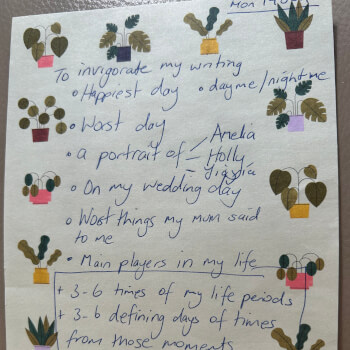 Mon
To invigorate my writing
• Happiest day • day me/night me
• Worst day
• a portrait of - Amelia
- Holly
- Yiayia
• On my wedding day
• Worst things my mum said
to me
• Main players in my life
+ 3-6 times of my life periods
+ 3-6 defining days of times
from those moments